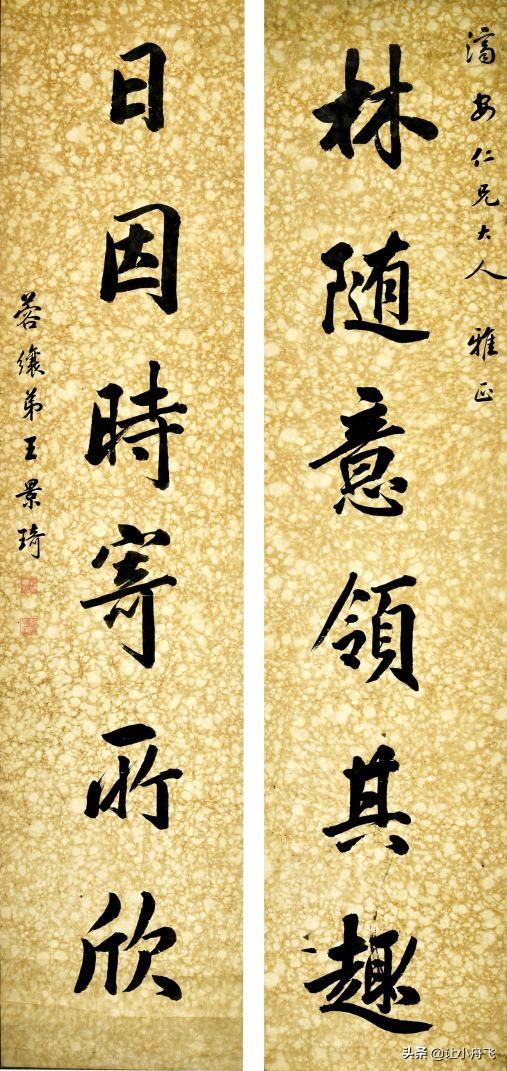 濟安仁兄大人 雅正
林随意領其趣
日因時寄所欣
蓉纕弟王景琦
头条 @让小丹飞